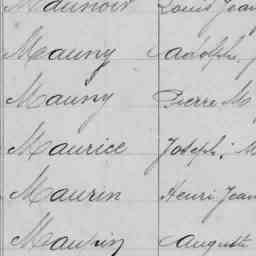 Maunoir Louis Jean
Mauny Adolphe
Mauny Pierre M
Maurice Joseph, M
Maurin Henri Jean
Maurin Auguste